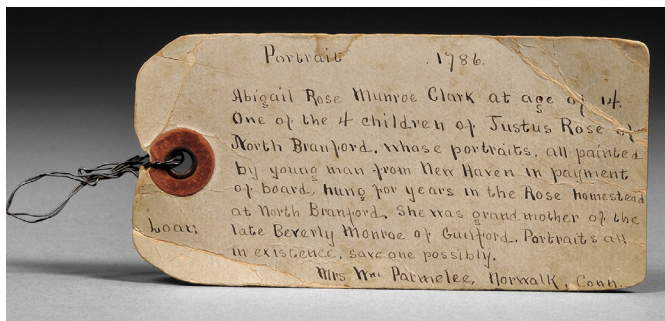 Portrait 1786.
Abigail Rose Munroe Clark at age of 14.
One of the 4 children of Justus Rose of
North Branford, whose portraits, all painted
by young man from New Haven in payment
of board, hung for years in the Rose homestead
at North Branford. She was grandmother of the
Loan late Beverly Monroe of Guilford. Portraits all
in existence, save one possibly.
Mrs Wm Parmelee, Norwalk, Conn.